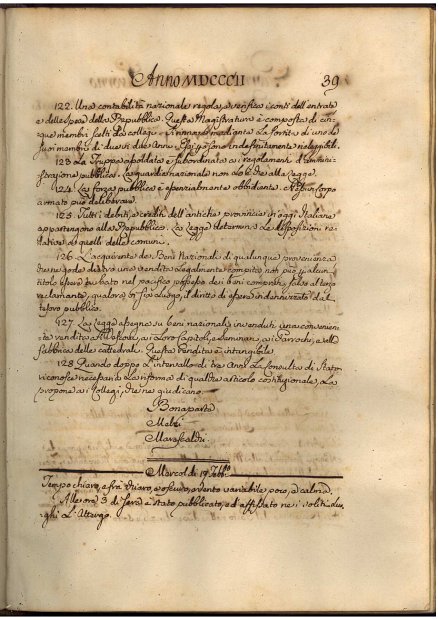 Anno MDCCCII 39
122. Una contabilità nazionale regola, e verifica i conti dell'entrate
e delle spese della Repubblica. Questa Magistratura è composta di cin-
que membri scelti da' collegi. Si rinnova mediante la sortita di uno de'
suoi membri di due in due anni. Essi possono indefinitamente rieleggibili.
123 La Truppa assoldata è subordinata ai regolamenti d'ammini-
strazione pubblica. La guardia nazionale non lo è che alla Legge.
124. La forza pubblica è essenzialmente obbediente. Nessun corpo
armato può deliberare.
125. Tutti i debiti, e crediti dell'antiche provincie in oggi Italiane
appartengono alla Repubblica. La Legge determina le disposizioni re-
lative a quelli delle comuni.
126. L'acquirente de' Beni Nazionali di qualunque provenienza
che ne gode dietro una vendita legalmente compita, non può a qualun-
titolo essere turbato nel pacifico possesso dei beni comprati, salvo al terzo
reclamante, qualora vi sia luogo, il diritto di essere indennizzato dal
tesoro pubblico.
127. La Legge assegna su beni nazionali invenduti una convenien-
te rendita a' Vescovi, ai Loro Capitoli, a' Seminari, ai Parrochi, e alle
fabbriche delle cattedrali. Questa rendita è intangibile
128. Quando doppo l'intervallo di tre Anni La Consulta di Stato
riconosce necessaria La riforma di qualche articolo costituzionale, La
propone ai Collegi, che ne giudicano.
Bonaparte
Melzi
Marescalchi
Marcoldì 17 Febb.º
Tempo chiaro, e fra chiaro, e oscuro, e vento variabile, poco, e calma.
Alle ore 3 di sera è stato pubblicato, ed affissato ne i soliti luo-
ghi L'